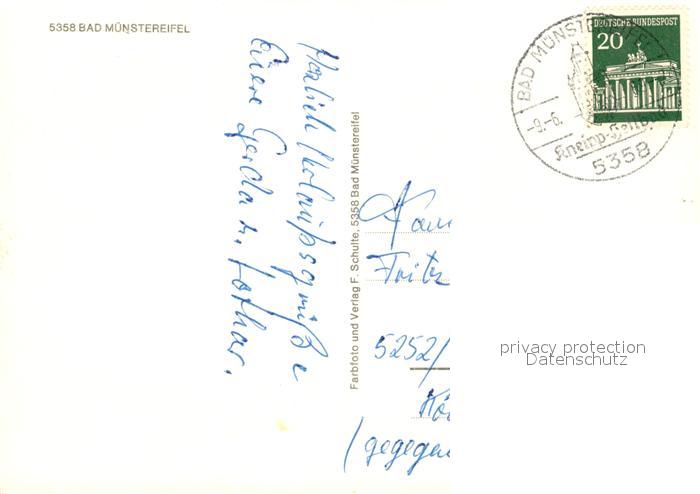 5358 BAD MÜNSTEREIFEL
Herzliche Urlaubsgrüße
Eure Gerda u. Lothar.
Farbfoto und Verlag F. Schulte, 5358 Bad Münstereifel
BAD MÜNSTEREIFEL
-9.-6.
Kneipp-Heilbad
5358
DEUTSCHE BUNDESPOST
20
Fam
Fritz
5252/
(gegen
privacy protection
Datenschutz